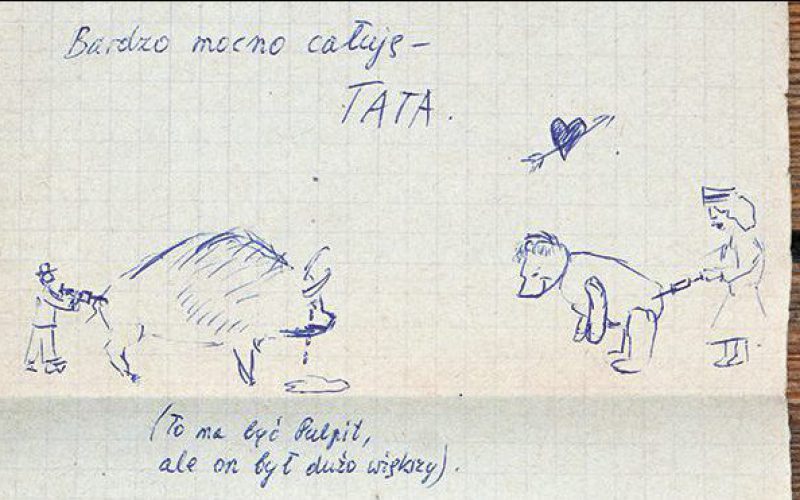 Bardzo mocno całuję –
TATA.
(To ma być Pulpit,
ale on był dużo większy).